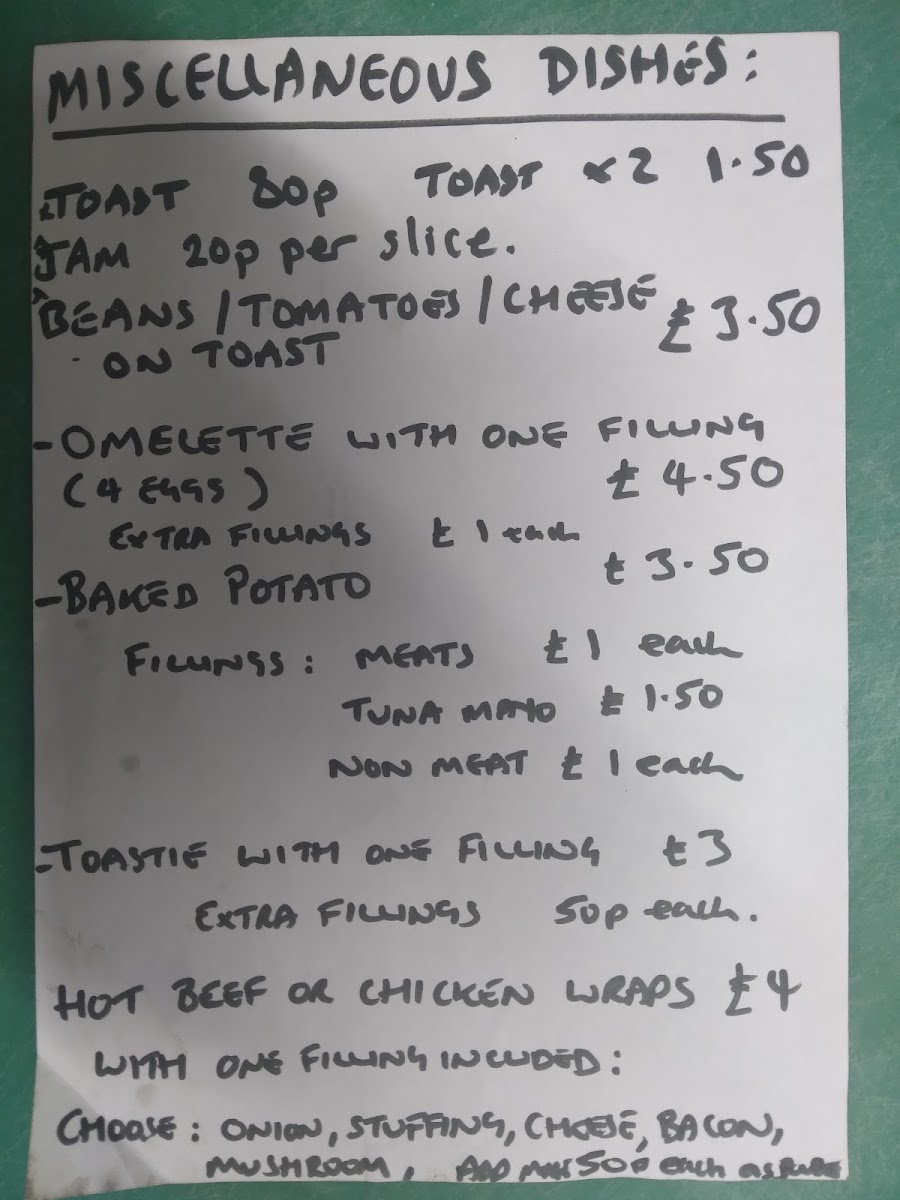 MISCELLANEOUS DISHES:
TOAST 80p TOAST x2 1.50
JAM 20p per slice.
BEANS/TOMATOES/CHEESE £3.50
ON TOAST
-OMELETTE WITH ONE FILLING
(4 EGGS) £4.50
EXTRA FILLINGS £1 each
-BAKED POTATO £3.50
FILLINGS: MEATS £1 each
TUNA MAYO £1.50
NON MEAT £1 each
-TOASTIE WITH ONE FILLING £3
EXTRA FILLINGS 50p each.
HOT BEEF OR CHICKEN WRAPS £4
WITH ONE FILLING INCLUDED:
CHOOSE: ONION, STUFFING, CHEESE, BACON,
MUSHROOM, ADD 50p each